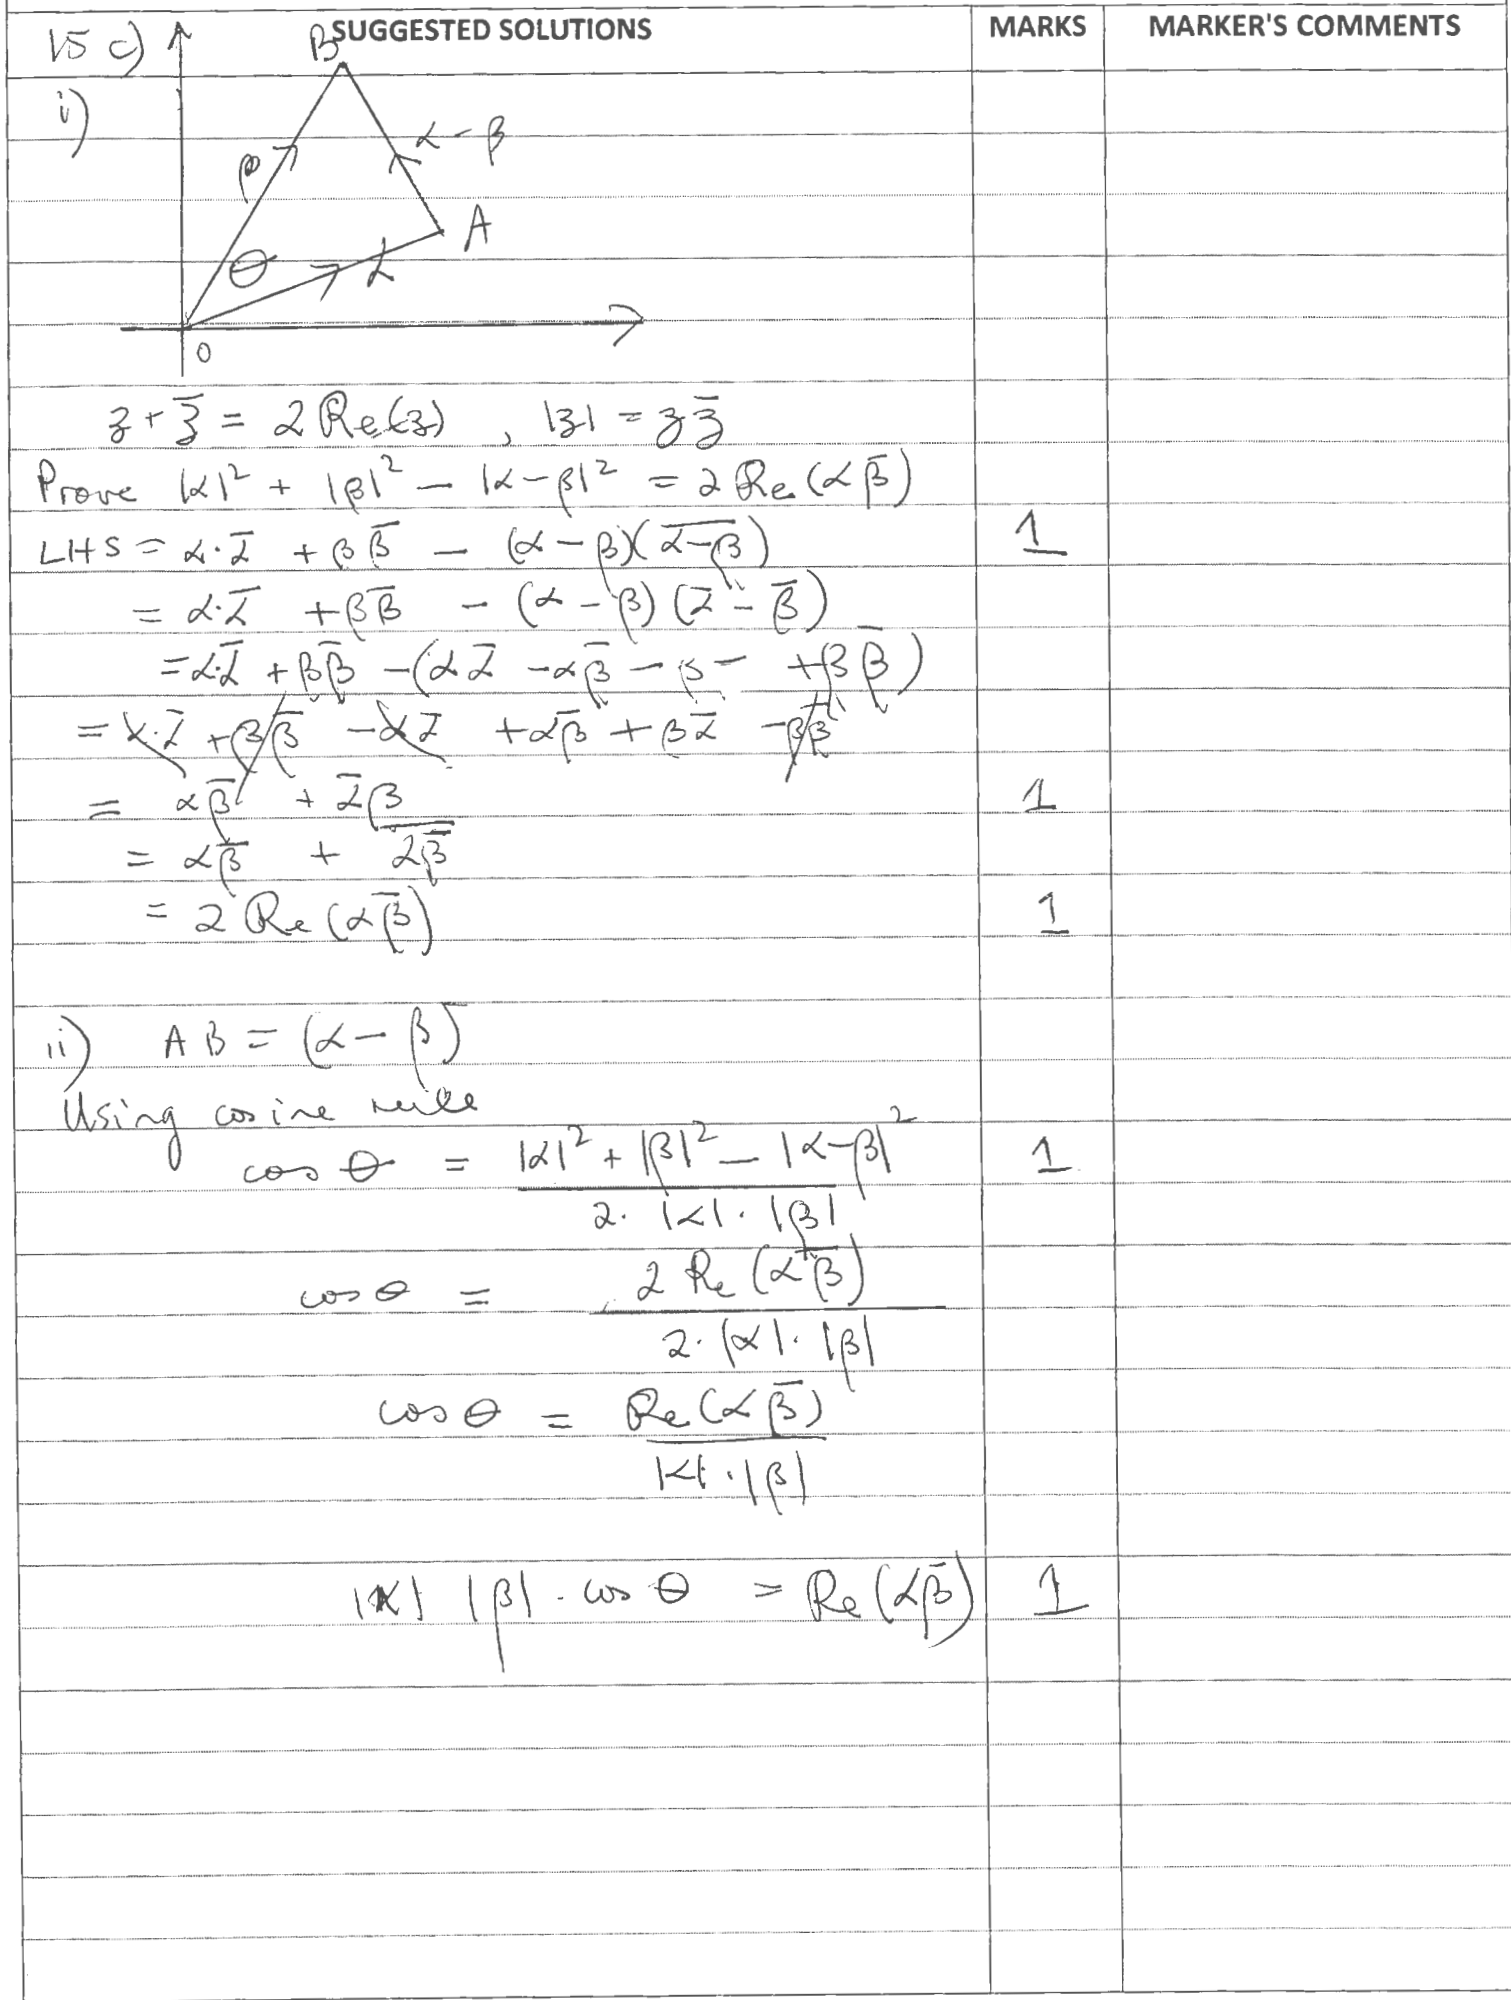 SUGGESTED SOLUTIONS MARKS MARKER'S COMMENTS
15 c)
B
i)
β
α - β
A
θ
α
0
z + z̄ = 2 Re(z) , |z| = z z̄
Prove |α|² + |β|² - |α-β|² = 2 Re(αβ̄)
LHS = α·ᾱ + ββ̄ - (α-β)(\overline{α-β}) 1
= α·ᾱ + ββ̄ - (α-β)(ᾱ-β̄)
= α·ᾱ + ββ̄ - (αᾱ - αβ̄ - β‾ + ββ̄)
= α·ᾱ + ββ̄ - αᾱ + αβ̄ + βᾱ - ββ̄
= αβ̄ + ᾱβ 1
= αβ̄ + \overline{αβ̄}
= 2 Re (αβ̄) 1
ii) AB = (α - β)
Using cosine rule
cos θ = |α|² + |β|² - |α-β|² 1
2. |α|. |β|
cos θ = 2 Re (αβ̄)
2. |α|. |β|
cos θ = Re (αβ̄)
|α|.|β|
|α| |β| . cos θ = Re (αβ̄) 1